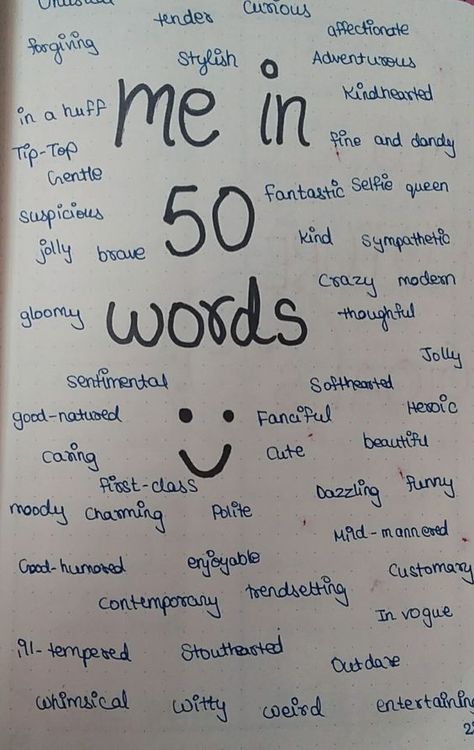 Unusual
tender
Curious
affectionate
forgiving
Stylish
Adventurous
Kindhearted
in a huff
me in
fine and dandy
Tip-Top
Gentle
Fantastic
Selfie queen
suspicious
50
Kind
sympathetic
jolly
brave
Crazy
modern
gloomy
words
thoughtful
Jolly
sentimental
Softhearted
Heroic
good-natured
Fanciful
beautiful
caring
Cute
first-class
Dazzling
funny
moody
charming
Polite
Mild-mannered
Good-humored
enjoyable
Customary
contemporary
trendsetting
In vogue
ill-tempered
Stouthearted
Outdare
whimsical
witty
weird
entertaining